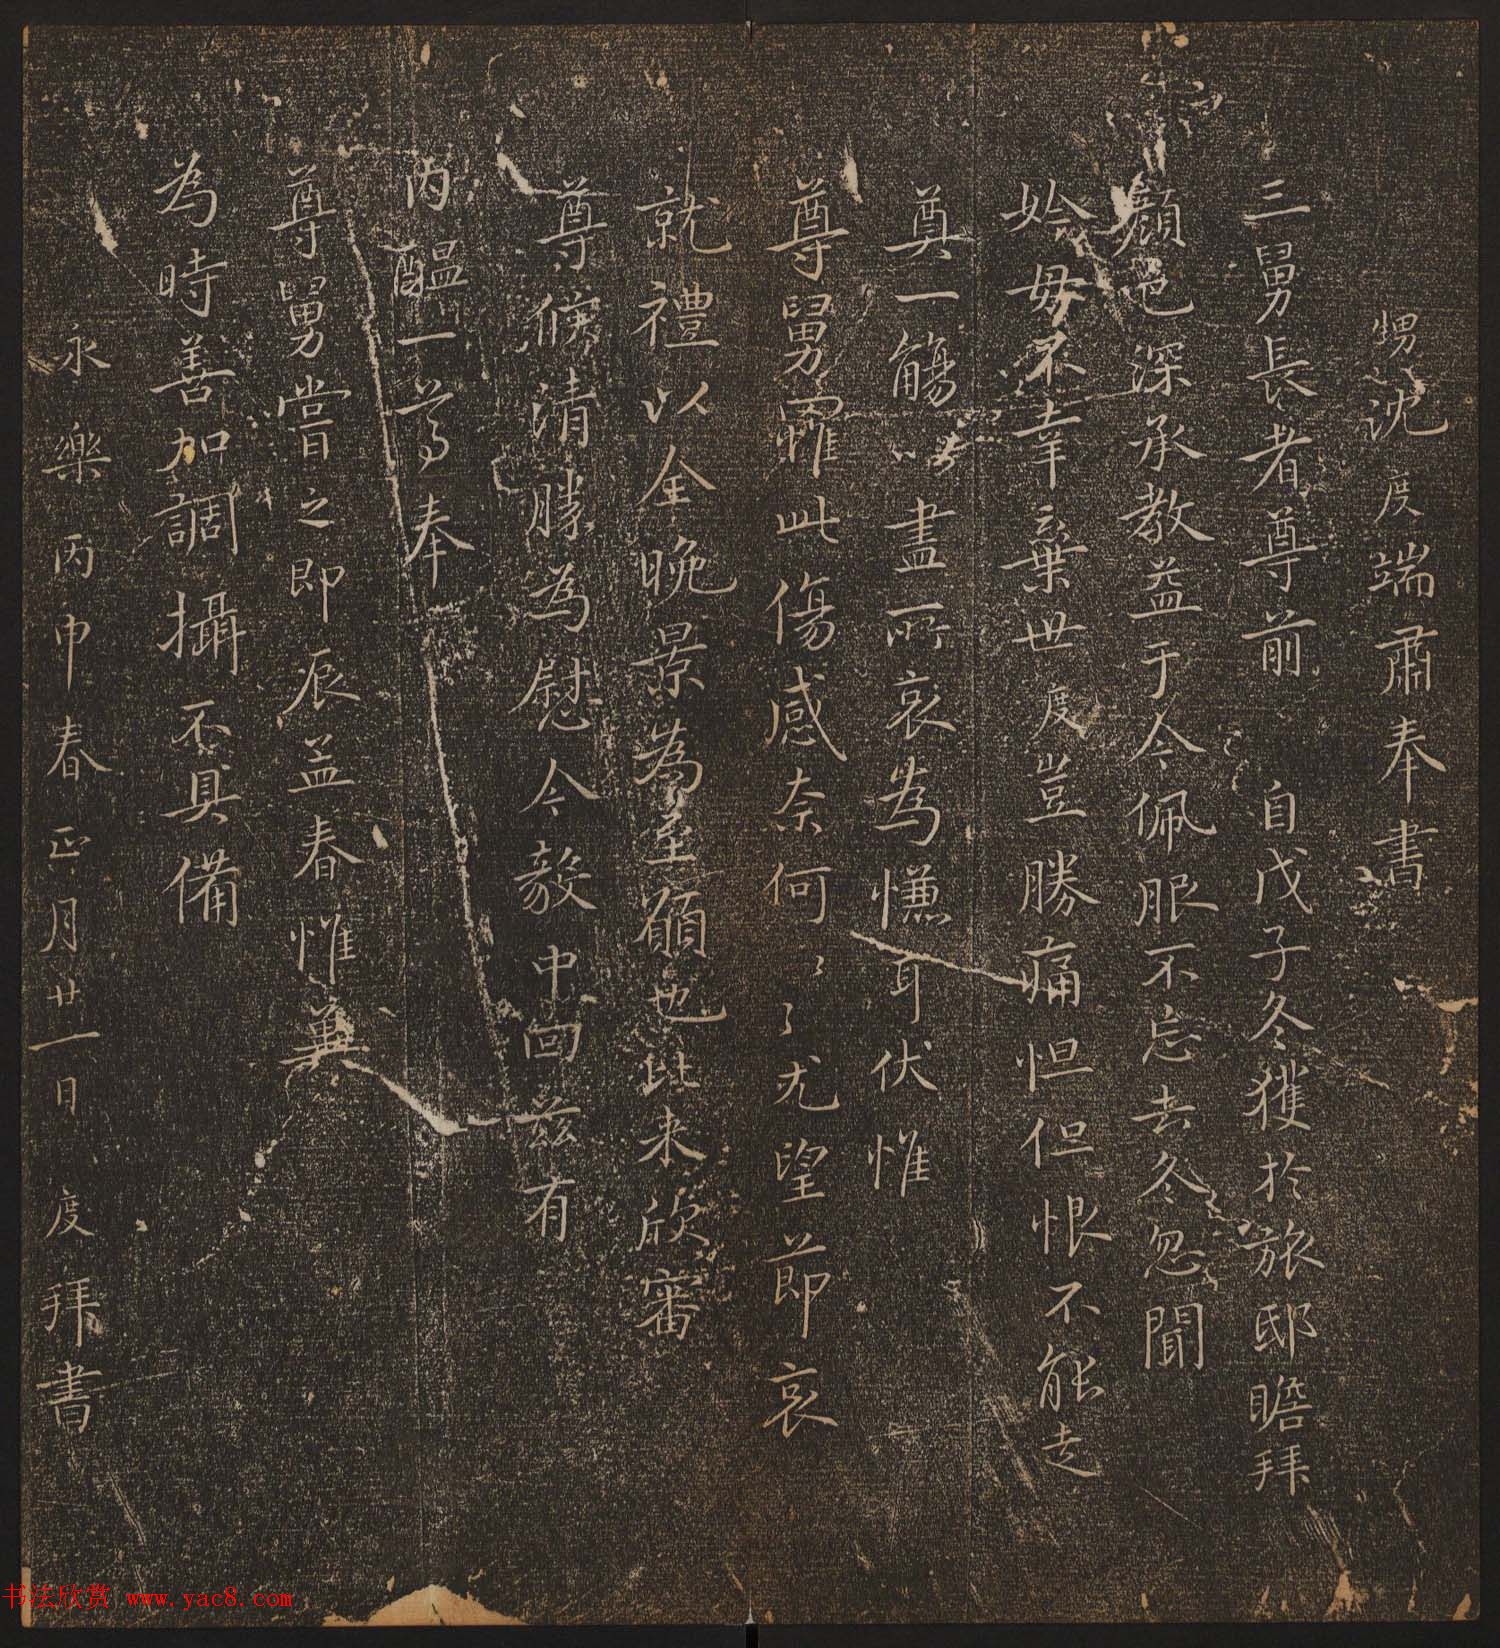 甥沈度端肅奉書
三舅長者尊前 自戊子冬獲於旅邸瞻拜
顏色深承教益于今佩服不忘去冬忽聞
妗母不幸棄世度豈勝痛怛但恨不能走
奠一觴以盡所哀為慊耳伏惟
尊舅罹此傷感奈何〻〻尤望節哀
就禮以全晚景為至願也比來欣審
尊候清勝為慰今毅中回茲有
丙醖一尊奉
尊舅嘗之即辰孟春惟冀
為時善加調攝不具備
永樂丙申春正月廿一日度拜書
书法欣赏 www.yac8.com